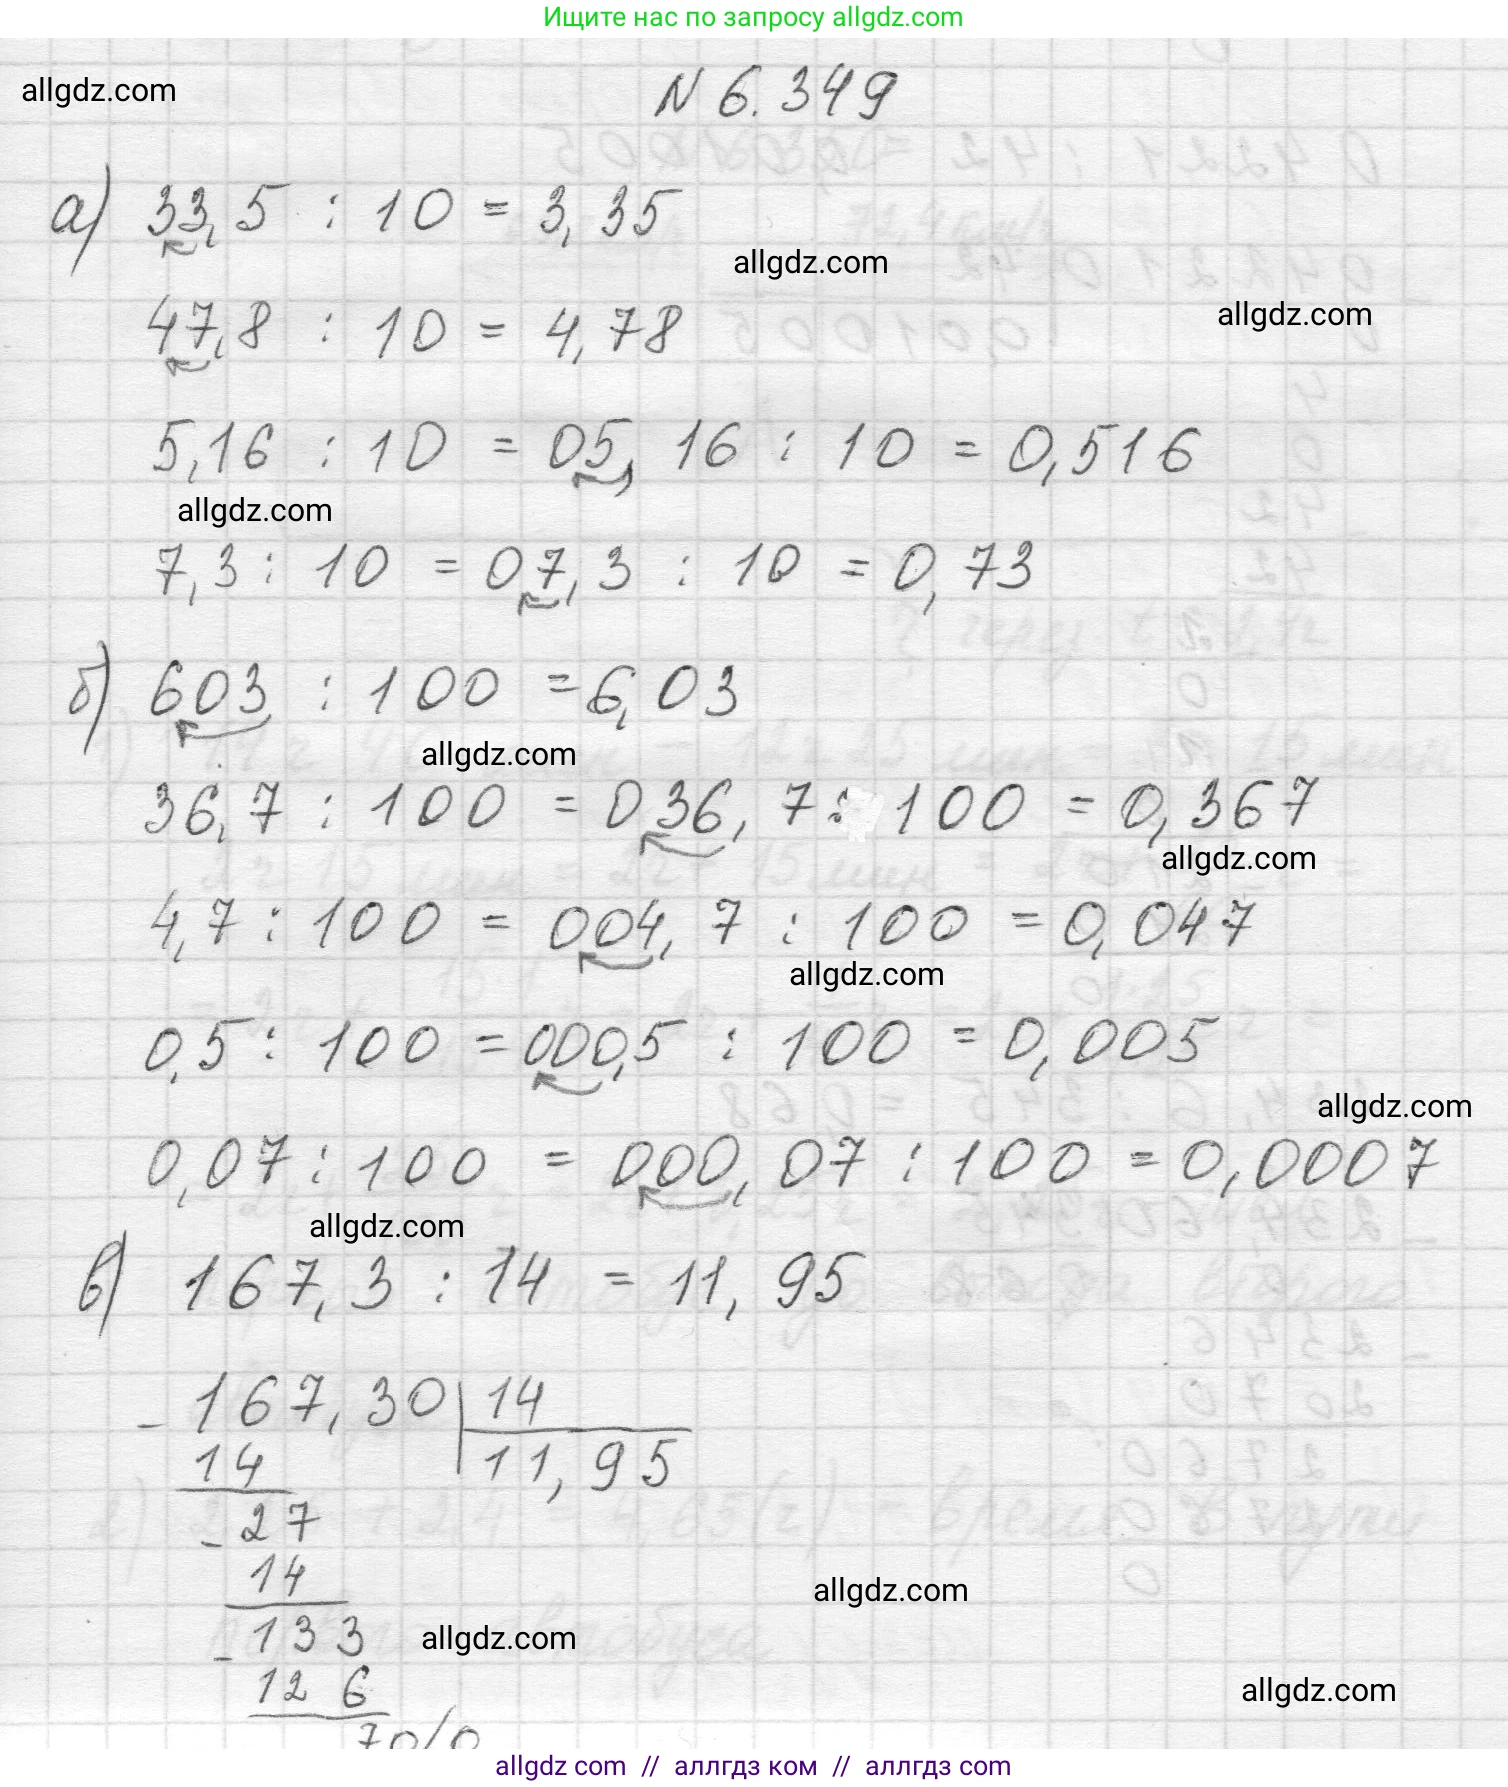 Ищите нас по запросу allgdz.com
allgdz.com
N 6.349
а) 33,5 : 10 = 3,35
allgdz.com
47,8 : 10 = 4,78
allgdz.com
5,16 : 10 = 05,16 : 10 = 0,516
allgdz.com
7,3 : 10 = 07,3 : 10 = 0,73
б) 603 : 100 = 6,03
allgdz.com
36,7 : 100 = 036,7 : 100 = 0,367
allgdz.com
4,7 : 100 = 004,7 : 100 = 0,047
allgdz.com
0,5 : 100 = 000,5 : 100 = 0,005
allgdz.com
0,07 : 100 = 000,07 : 100 = 0,0007
allgdz.com
в) 167,3 : 14 = 11,95
- 167,30 | 14
14 11,95
- 27
14
allgdz.com
- 133
allgdz.com
126
allgdz.com
70/0
allgdz com // аллгдз ком // аллгдз com